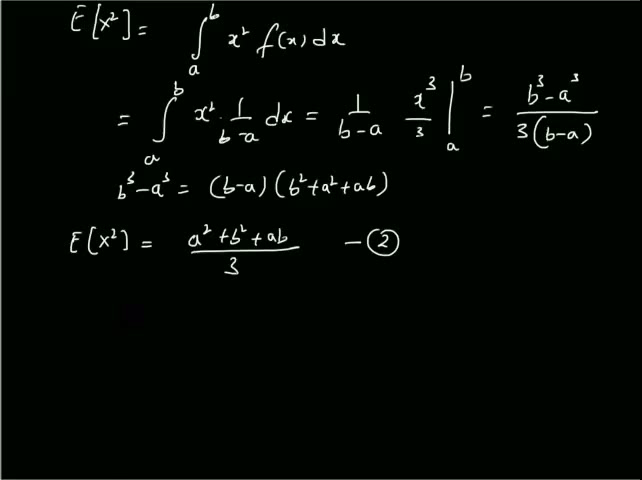 E[x²] = ∫ₐᵇ x² f(x) dx
= ∫ₐᵇ x² · 1/(b-a) dx = 1/(b-a) x³/3 |ₐᵇ = (b³-a³)/(3(b-a))
b³-a³ = (b-a) (b²+a²+ab)
E[x²] = (a²+b²+ab)/3 - ②